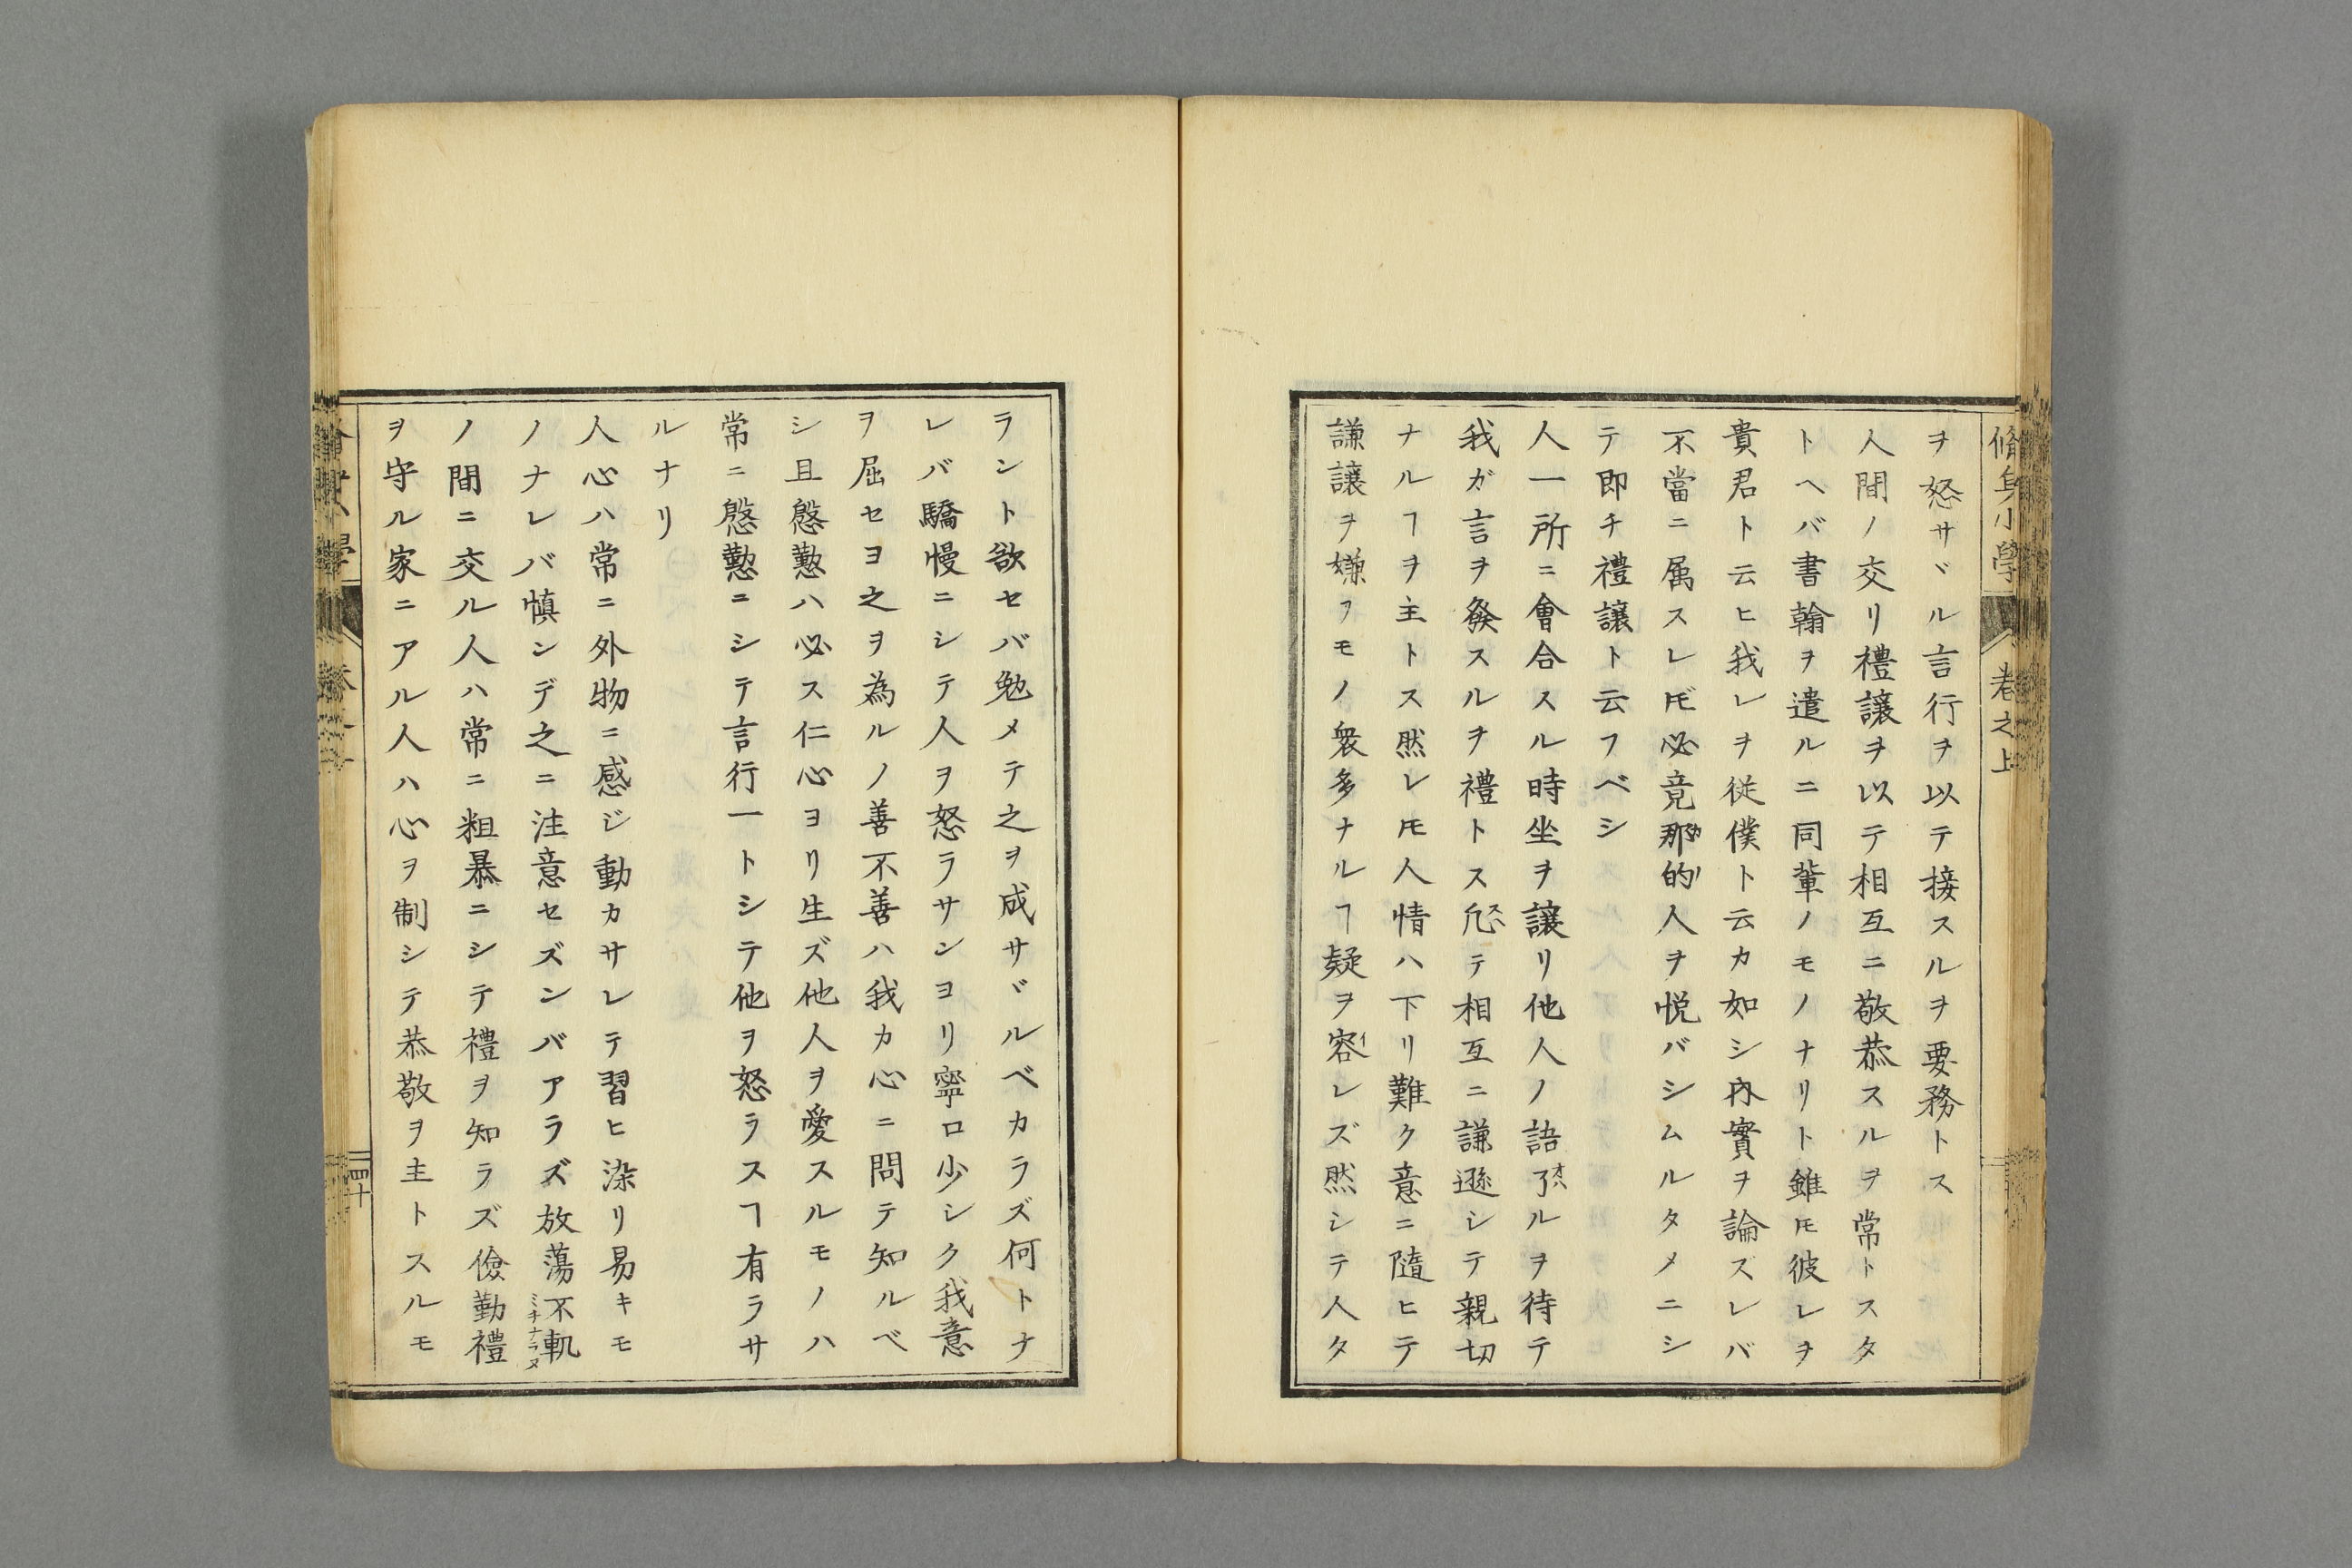 脩身小學 卷之上
ヲ怒サヾル言行ヲ以テ接スルヲ要務トス
人間ノ交リ禮讓ヲ以テ相互ニ敬恭スルヲ常トスタ
トヘバ書翰ヲ遣ルニ同輩ノモノナリト雖𪜈彼レヲ
貴君ト云ヒ我レヲ従僕ト云カ如シ內實ヲ論ズレバ
不當ニ属スレ𪜈必竟那的人ヲ悦バシムルタメニシ
テ即チ禮讓ト云フベシ
人一所ニ會合スル時坐ヲ讓リ他人ノ語了ルヲ待テ
我ガ言ヲ發スルヲ禮トス凢テ相互ニ謙遜シテ親切
ナルヿヲ主トス然レ𪜈人情ハ下リ難ク意ニ隨ヒテ
謙讓ヲ嫌フモノ衆多ナルヿ疑ヲ容レズ然シテ人タ
ラント欲セバ勉メテ之ヲ成サヾルベカラズ何トナ
レバ驕慢ニシテ人ヲ怒ラサンヨリ寧ロ少シク我意
ヲ屈セヨ之ヲ為ルノ善不善ハ我カ心ニ問テ知ルベ
シ且慇懃ハ必ス仁心ヨリ生ズ他人ヲ愛スルモノハ
常ニ慇懃ニシテ言行一トシテ他ヲ怒ラスヿ有ラサ
ルナリ
人心ハ常ニ外物ニ感ジ動カサレテ習ヒ染リ易キモ
ノナレバ慎ンデ之ニ注意セズンバアラズ放蕩不軌
ノ間ニ交ル人ハ常ニ粗暴ニシテ禮ヲ知ラズ儉勤禮
ヲ守ル家ニアル人ハ心ヲ制シテ恭敬ヲ主トスルモ
四十